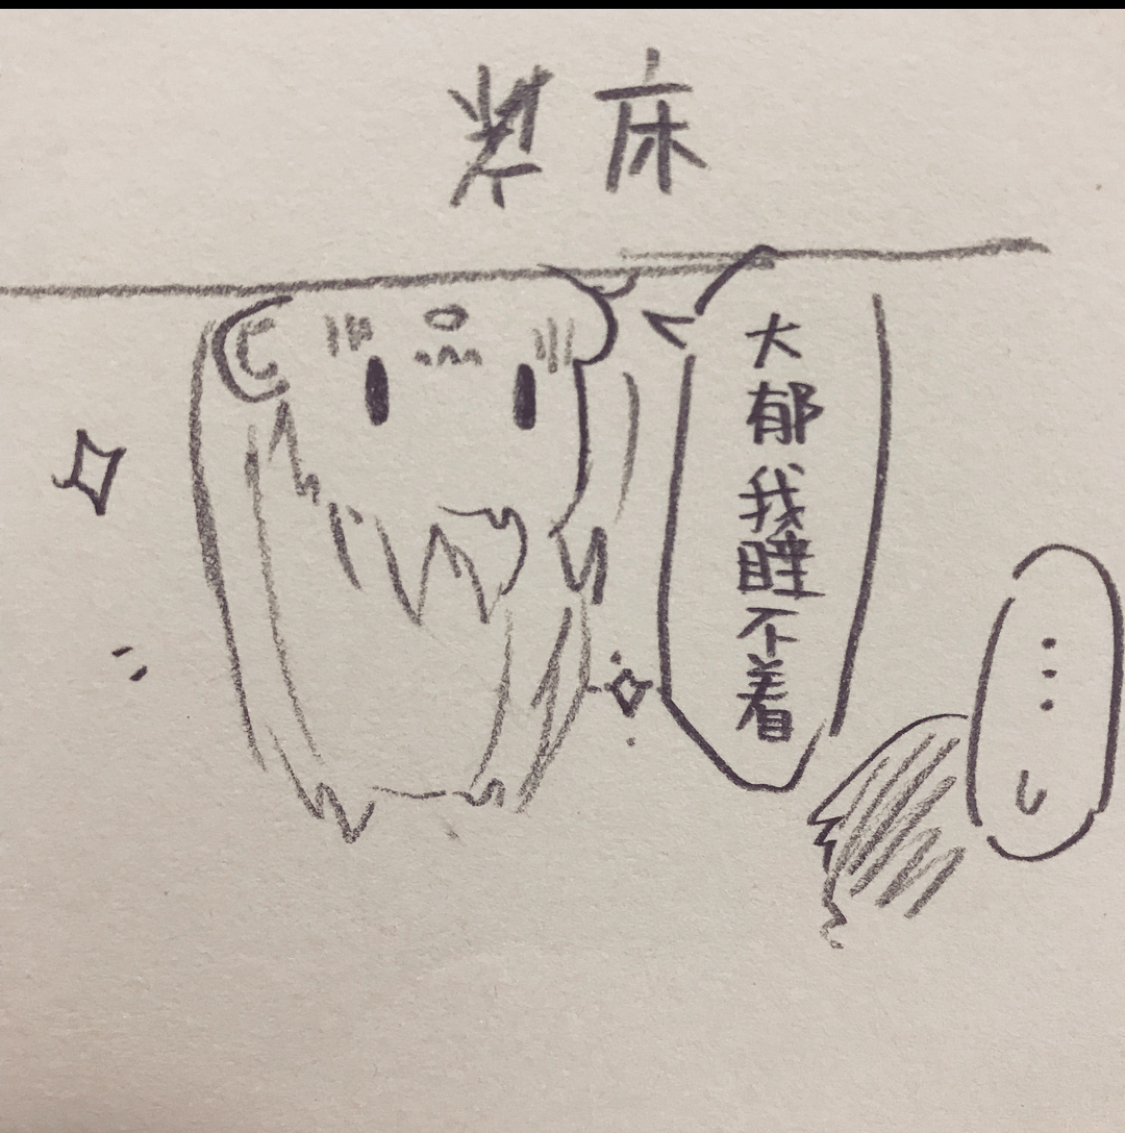 床
大郁我睡不着
...